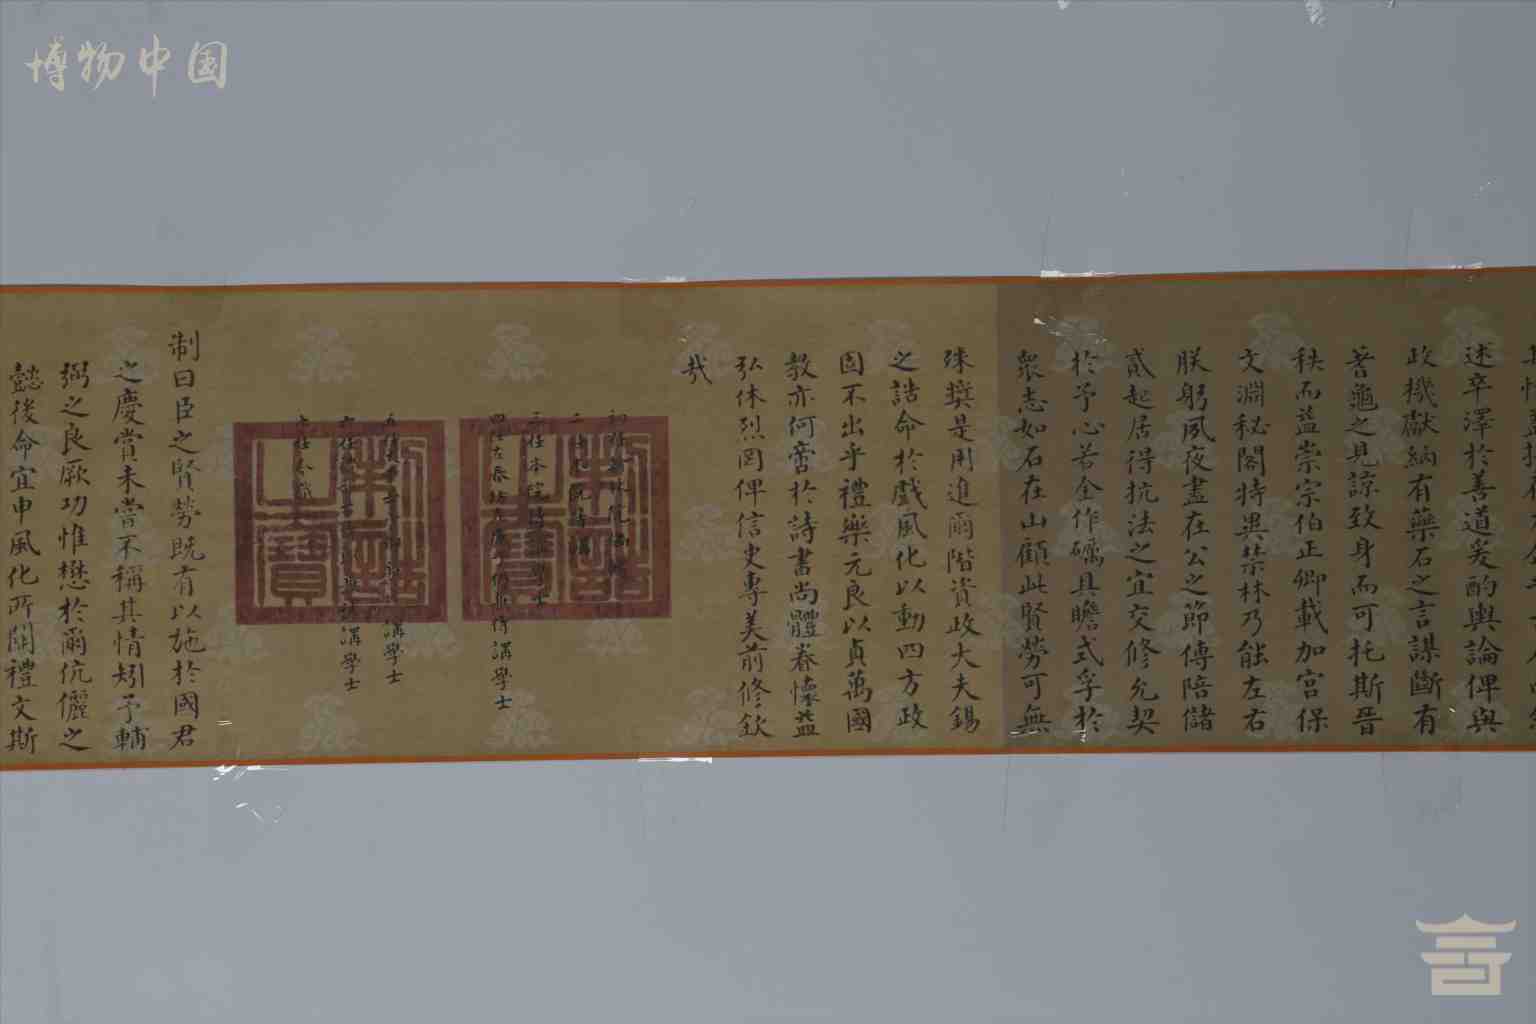 博物中国
述辛澤於善道爰酌輿論俾與
政機獻納有藥石之言謀斷有
蓍龜之見諒致身而可托斯晉
秩而益崇宗伯正卿載加宮保
文淵秘閣特異禁林乃能左右
朕躬夙夜盡在公之節傅陪儲
貳起居得抗法之宜交修允契
於予心若金作礪具瞻式孚於
衆志如石在山顧此賢勞可無
殊奬是用進爾階資政大夫錫
之誥命於戲風化以動四方政
固不出乎禮樂元良以貞萬國
教亦何啻於詩書尚體眷懷益
弘休烈罔俾信史專美前修欽
哉
三任本院侍
四任左春坊左庶子兼侍講學士
講學士
講學士
制誥之寶
制誥之寶
制曰臣之賢勞既有以施於國君
之慶賞未嘗不稱其情矧予輔
弼之良厥功惟懋於爾伉儷之
懿後命宜申風化所關禮文斯